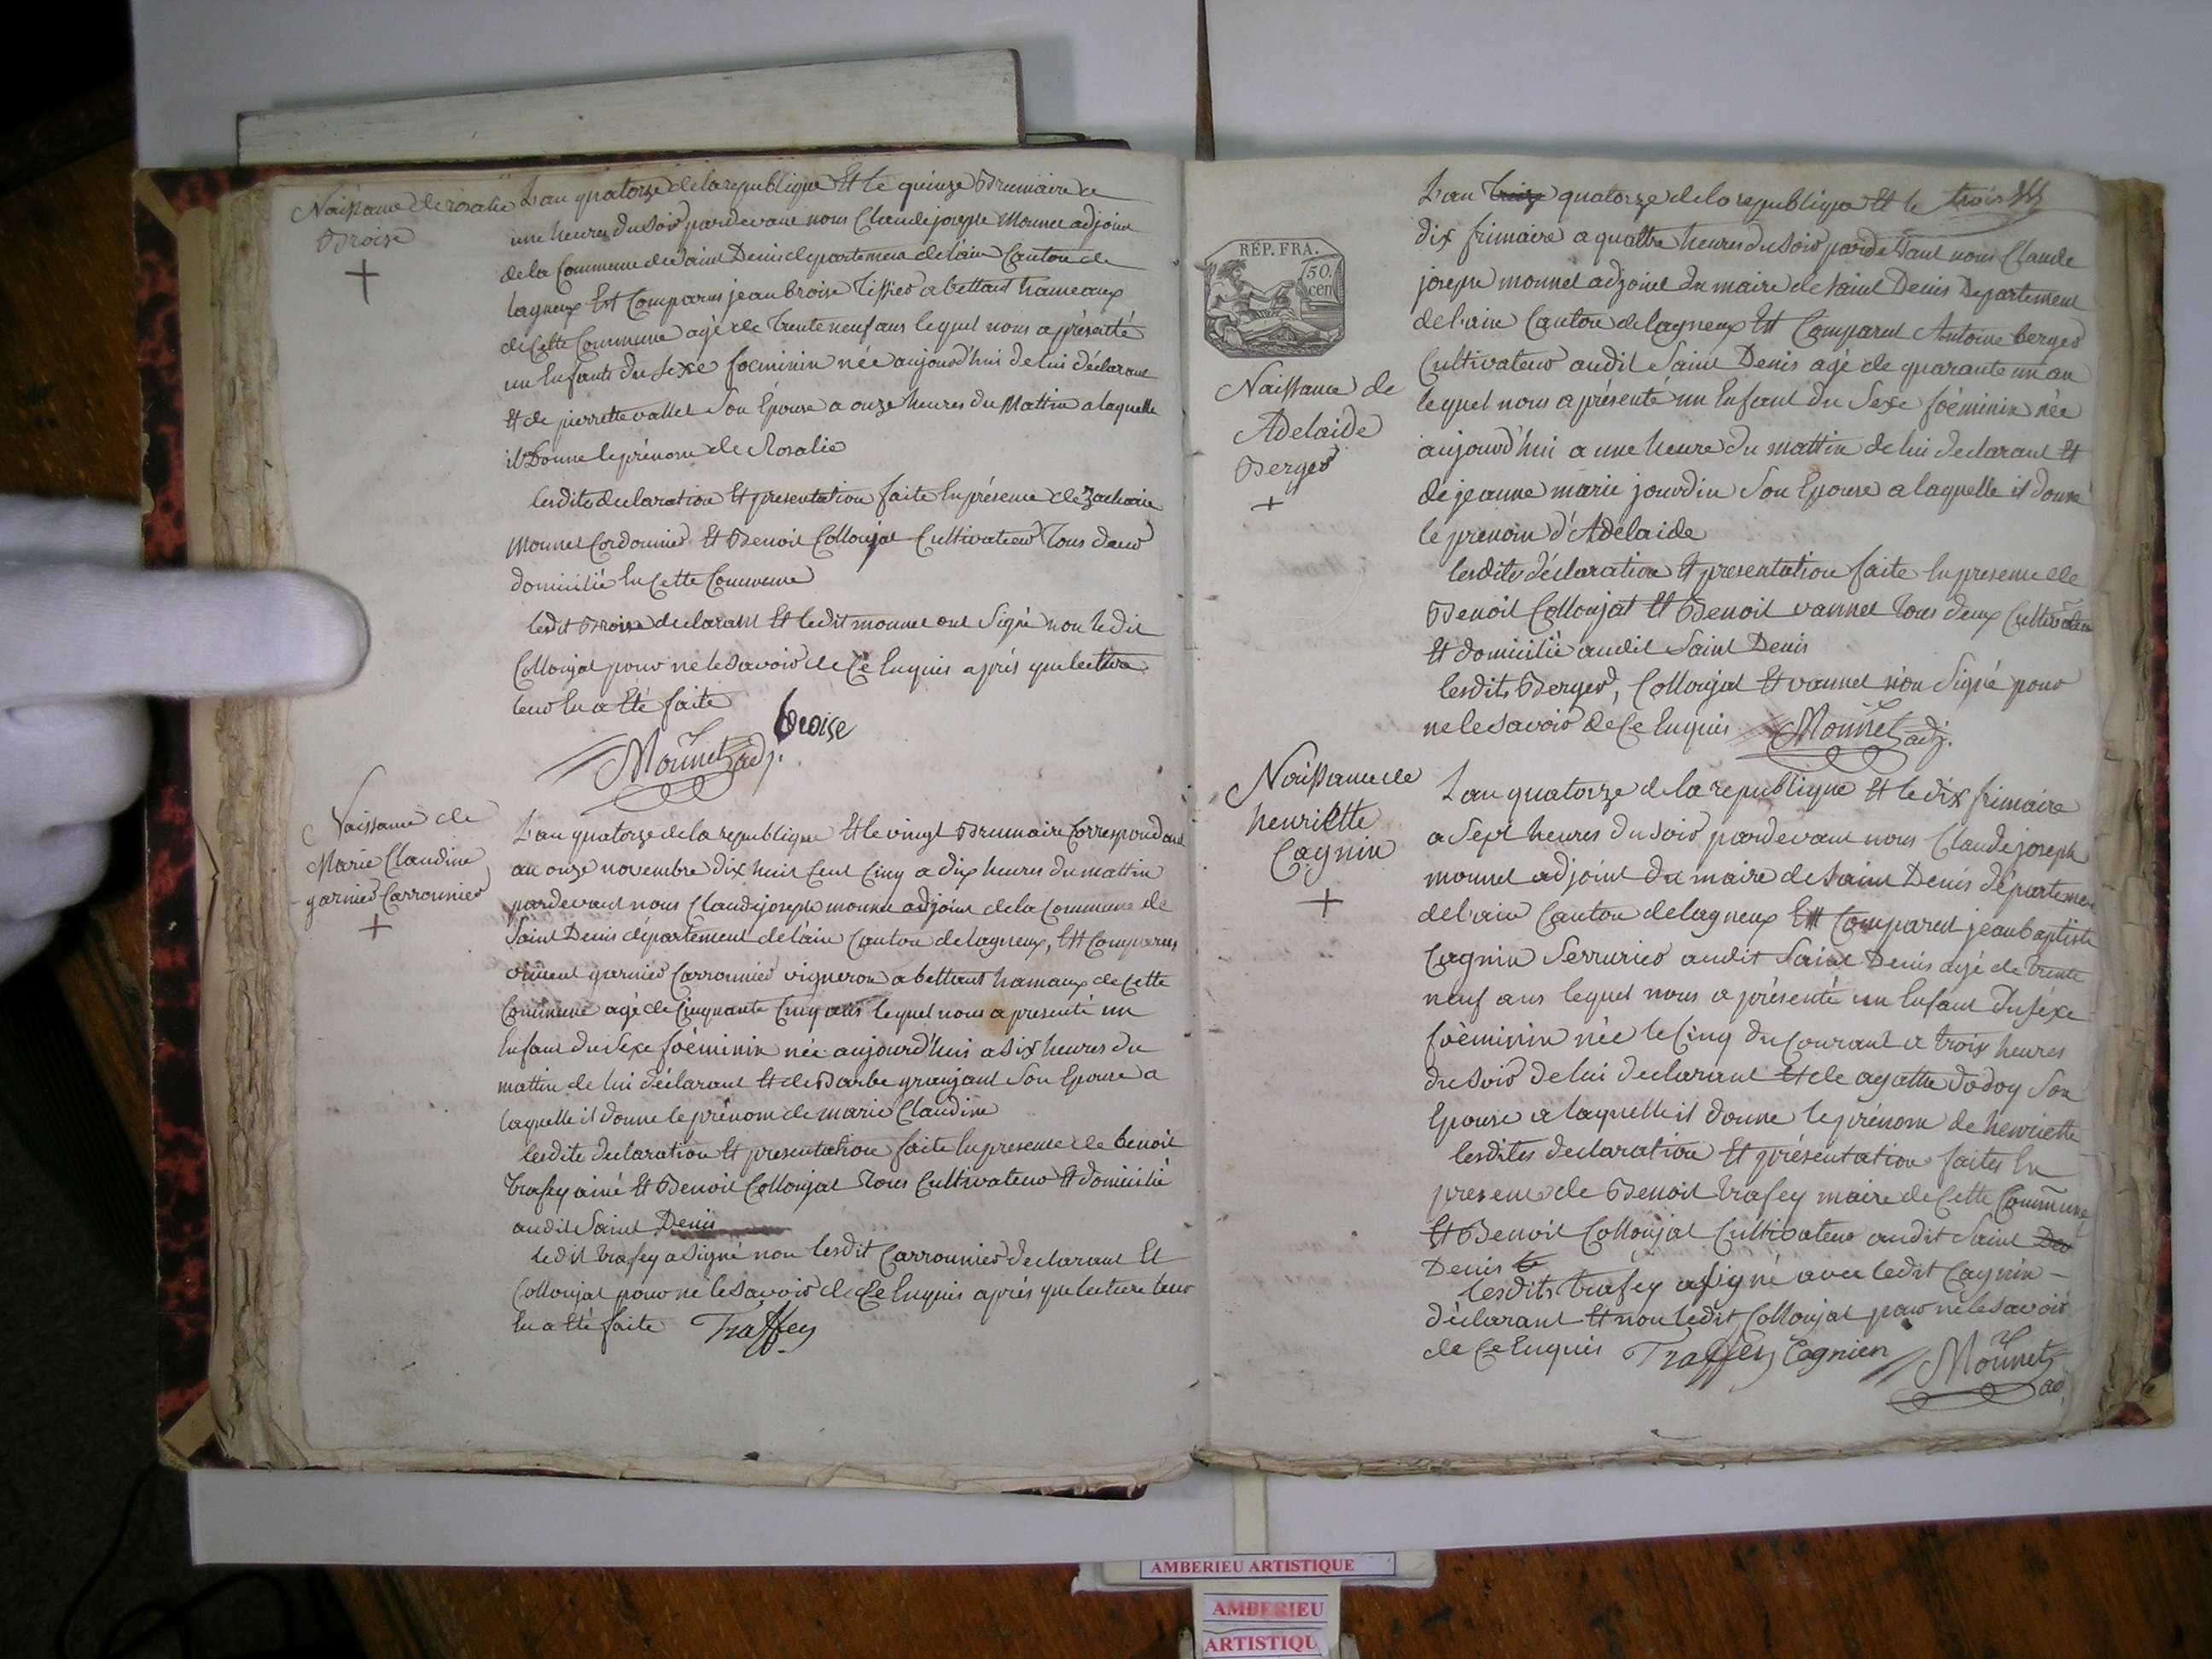 Naissance de rosalie
Broise
L'an quatorze de la republique Et le quinze Brumaire a
une heures du soir pardevant nous Claude joseph Monnet adjoint
de la Commune de Saint Denis departement de l'ain Canton de
lagneux Est Comparus jean broise tissier a bettant hameaux
de Cette Commune agé de trente neuf ans lequel nous a présenté
un Enfants du sexe foeminin née aujourd'hui de lui déclarant
Et de pierrette vallet Son Epouse a onze heures du Mattin a laquelle
il Donne le prénom de Rosalie
lesdits declaration Et presentation faite En présence de Zacharie
Monnet Cordonnier Et Benoit Collonjat Cultivateur Tous deux
domicilié En Cette Commune
ledit Broise declarant Et ledit monnet ont Signé non ledit
Collonjat pour ne le savoir de Ce Enquis après que lecture
leur En a Eté faite
broise
Monnet adj.
Naissance de
Marie Claudine
garnier Carronnier
L'an quatorze de la republique Et le vingt Brumaire Correspondant
au onze novembre dix huit Cent Cinq a dix heures du mattin
pardevant nous Claude joseph monnet adjoint de la Commune de
Saint Denis département de l'ain Canton de lagneux, Est Comparus
vincent garnier Carronnier vigneron a bettant hamaux de Cette
Commune agé de Cinquante Cinq ans lequel nous a presenté un
Enfant du Sexe foéminin née aujourd'hui a six heures du
mattin de lui déclarant Et de Barbe granjant Son Epouse a
laquelle il donne le prénom de marie Claudine
lesdits declaration Et presentation faite En presence de benoit
trafey ainé Et Benoit Collonjat Tous Cultivateur Et domicilié
audit Saint Denis
ledit trafey a signé non lesdit Carronnier declarant Et
Collonjat pour ne le savoir de Ce Enquis après que lecture leur
En a Eté faite Traffey
RÉP. FRA.
50.
cen
Naissance de
Adelaide
Berger
L'an treize quatorze de la republique Et le trois
dix frimaire a quattre heures du soir pardevant nous Claude
joseph monnet adjoint du maire de Saint Denis Departement
de l'ain Canton de lagneux Est Comparut Antoine berger
Cultivateur audit Saint Denis agé de quarante un an
lequel nous a présenté un Enfant du Sexe foéminin née
aujourd'hui a une heure du mattin de lui declarant Et
de jeanne marie jourdin Son Epouse a laquelle il donne
le prenom d'Adelaide
lesdits déclaration Et presentation faite En presence de
Benoit Collonjat Et Benoit vannet Tous deux Cultivateur
Et domicilié audit Saint Denis
lesdits Berger, Collonjat Et vannet n'on Signé pour
ne le savoir de Ce Enquis Monnet adj.
Naissance de
henriette
Cagnin
L'an quatorze de la republique Et le dix frimaire
a Sept heures du soir pardevant nous Claude joseph
monnet adjoint du maire de Saint Denis département
de l'ain Canton de lagneux Est Comparut jean baptiste
Cagnin Serrurier audit Saint Denis agé de trente
neuf ans lequel nous a présenté un Enfant du séxe
foéminin née le Cinq du Courant a trois heures
du soir de lui declarant Et de agathe dodoy Son
Epouse a laquelle il donne le prénom de henriette
lesdites declaration Et présentation faites En
presence de Benoit trafey maire de Cette Commune
Et Benoit Collonjat Cultivateur audit Saint Den
Denis
lesdits trafey a signé avec ledit Cagnin
déclarant Et non ledit Collonjat pour ne le savoir
de Ce Enquis Traffey Cagnien Monnet
ad.
AMBERIEU ARTISTIQUE
AMBERIEU
ARTISTIQU